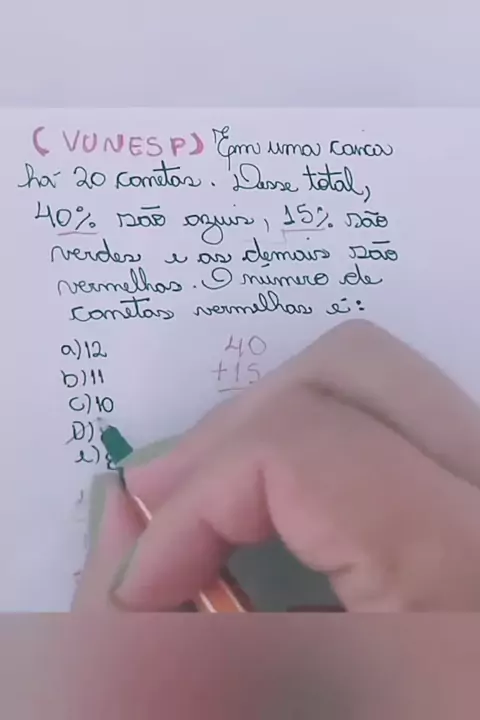 (VUNESP) Em uma caixa
há 20 canetas. Desse total,
40% são azuis, 15% são
verdes e as demais são
vermelhas. O número de
canetas vermelhas é:
a) 12
b) 11
c) 10
D)
e)
40
+15